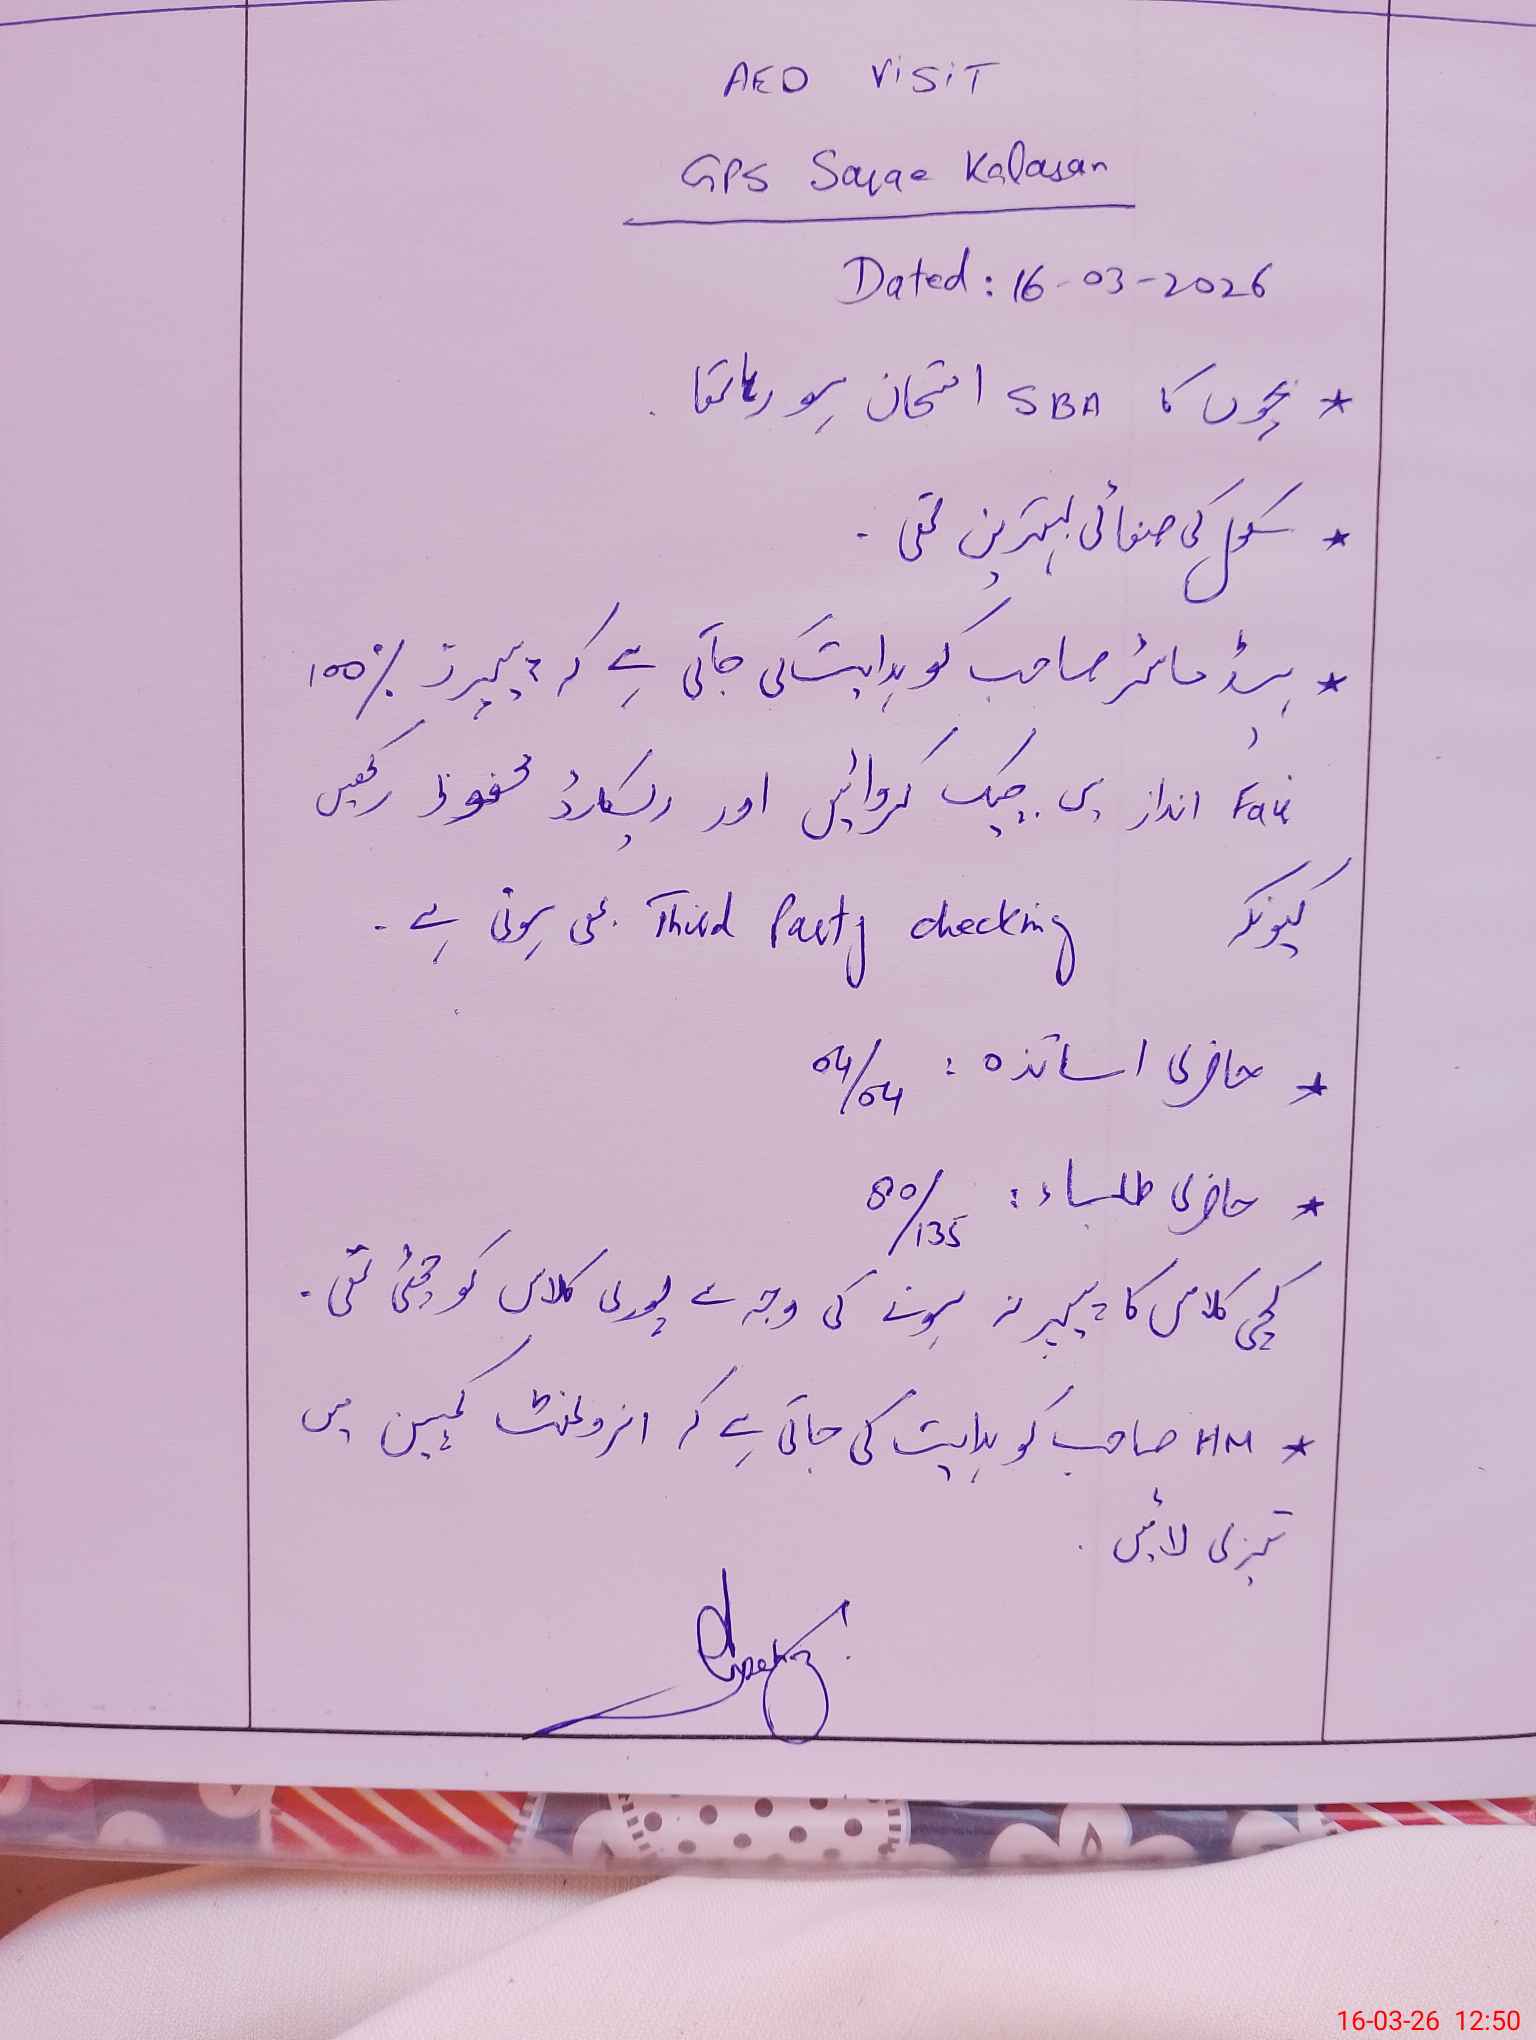 AEO VISIT
GPS Sarae Kalasan
Dated: 16-03-2026
★ بچوں کا SBA امتحان ہو رہا تھا۔
★ سکول کی صفائی بہترین تھی۔
★ ہیڈ ماسٹر صاحب کو ہدایت کی جاتی ہے کہ پیپرز 100%
Fair انداز میں چیک کروائیں اور ریکارڈ محفوظ رکھیں
کیونکہ Third Party checking بھی ہونی ہے۔
★ حاضری اساتذہ : 04/04
★ حاضری طلباء : 80/135
کچی کلاس کا پیپر نہ ہونے کی وجہ سے پوری کلاس کو چھٹی تھی۔
★ HM صاحب کو ہدایت کی جاتی ہے کہ انرولمنٹ کمپین میں
تیزی لائیں۔
16-03-26 12:50